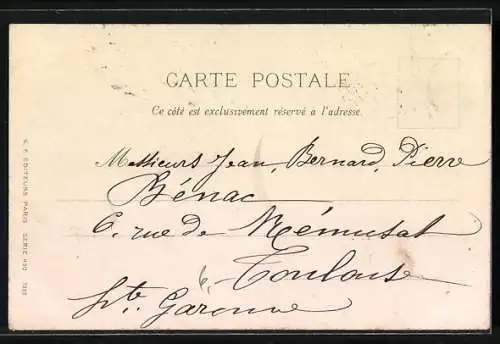 CARTE POSTALE
Ce côté est exclusivement réservé a l'adresse.
Messieurs Jean, Bernard, Pierre
Bénac
6. rue de Rémusat
6, Toulouse
Hte. Garonne
EDITEURS PARIS SERIE